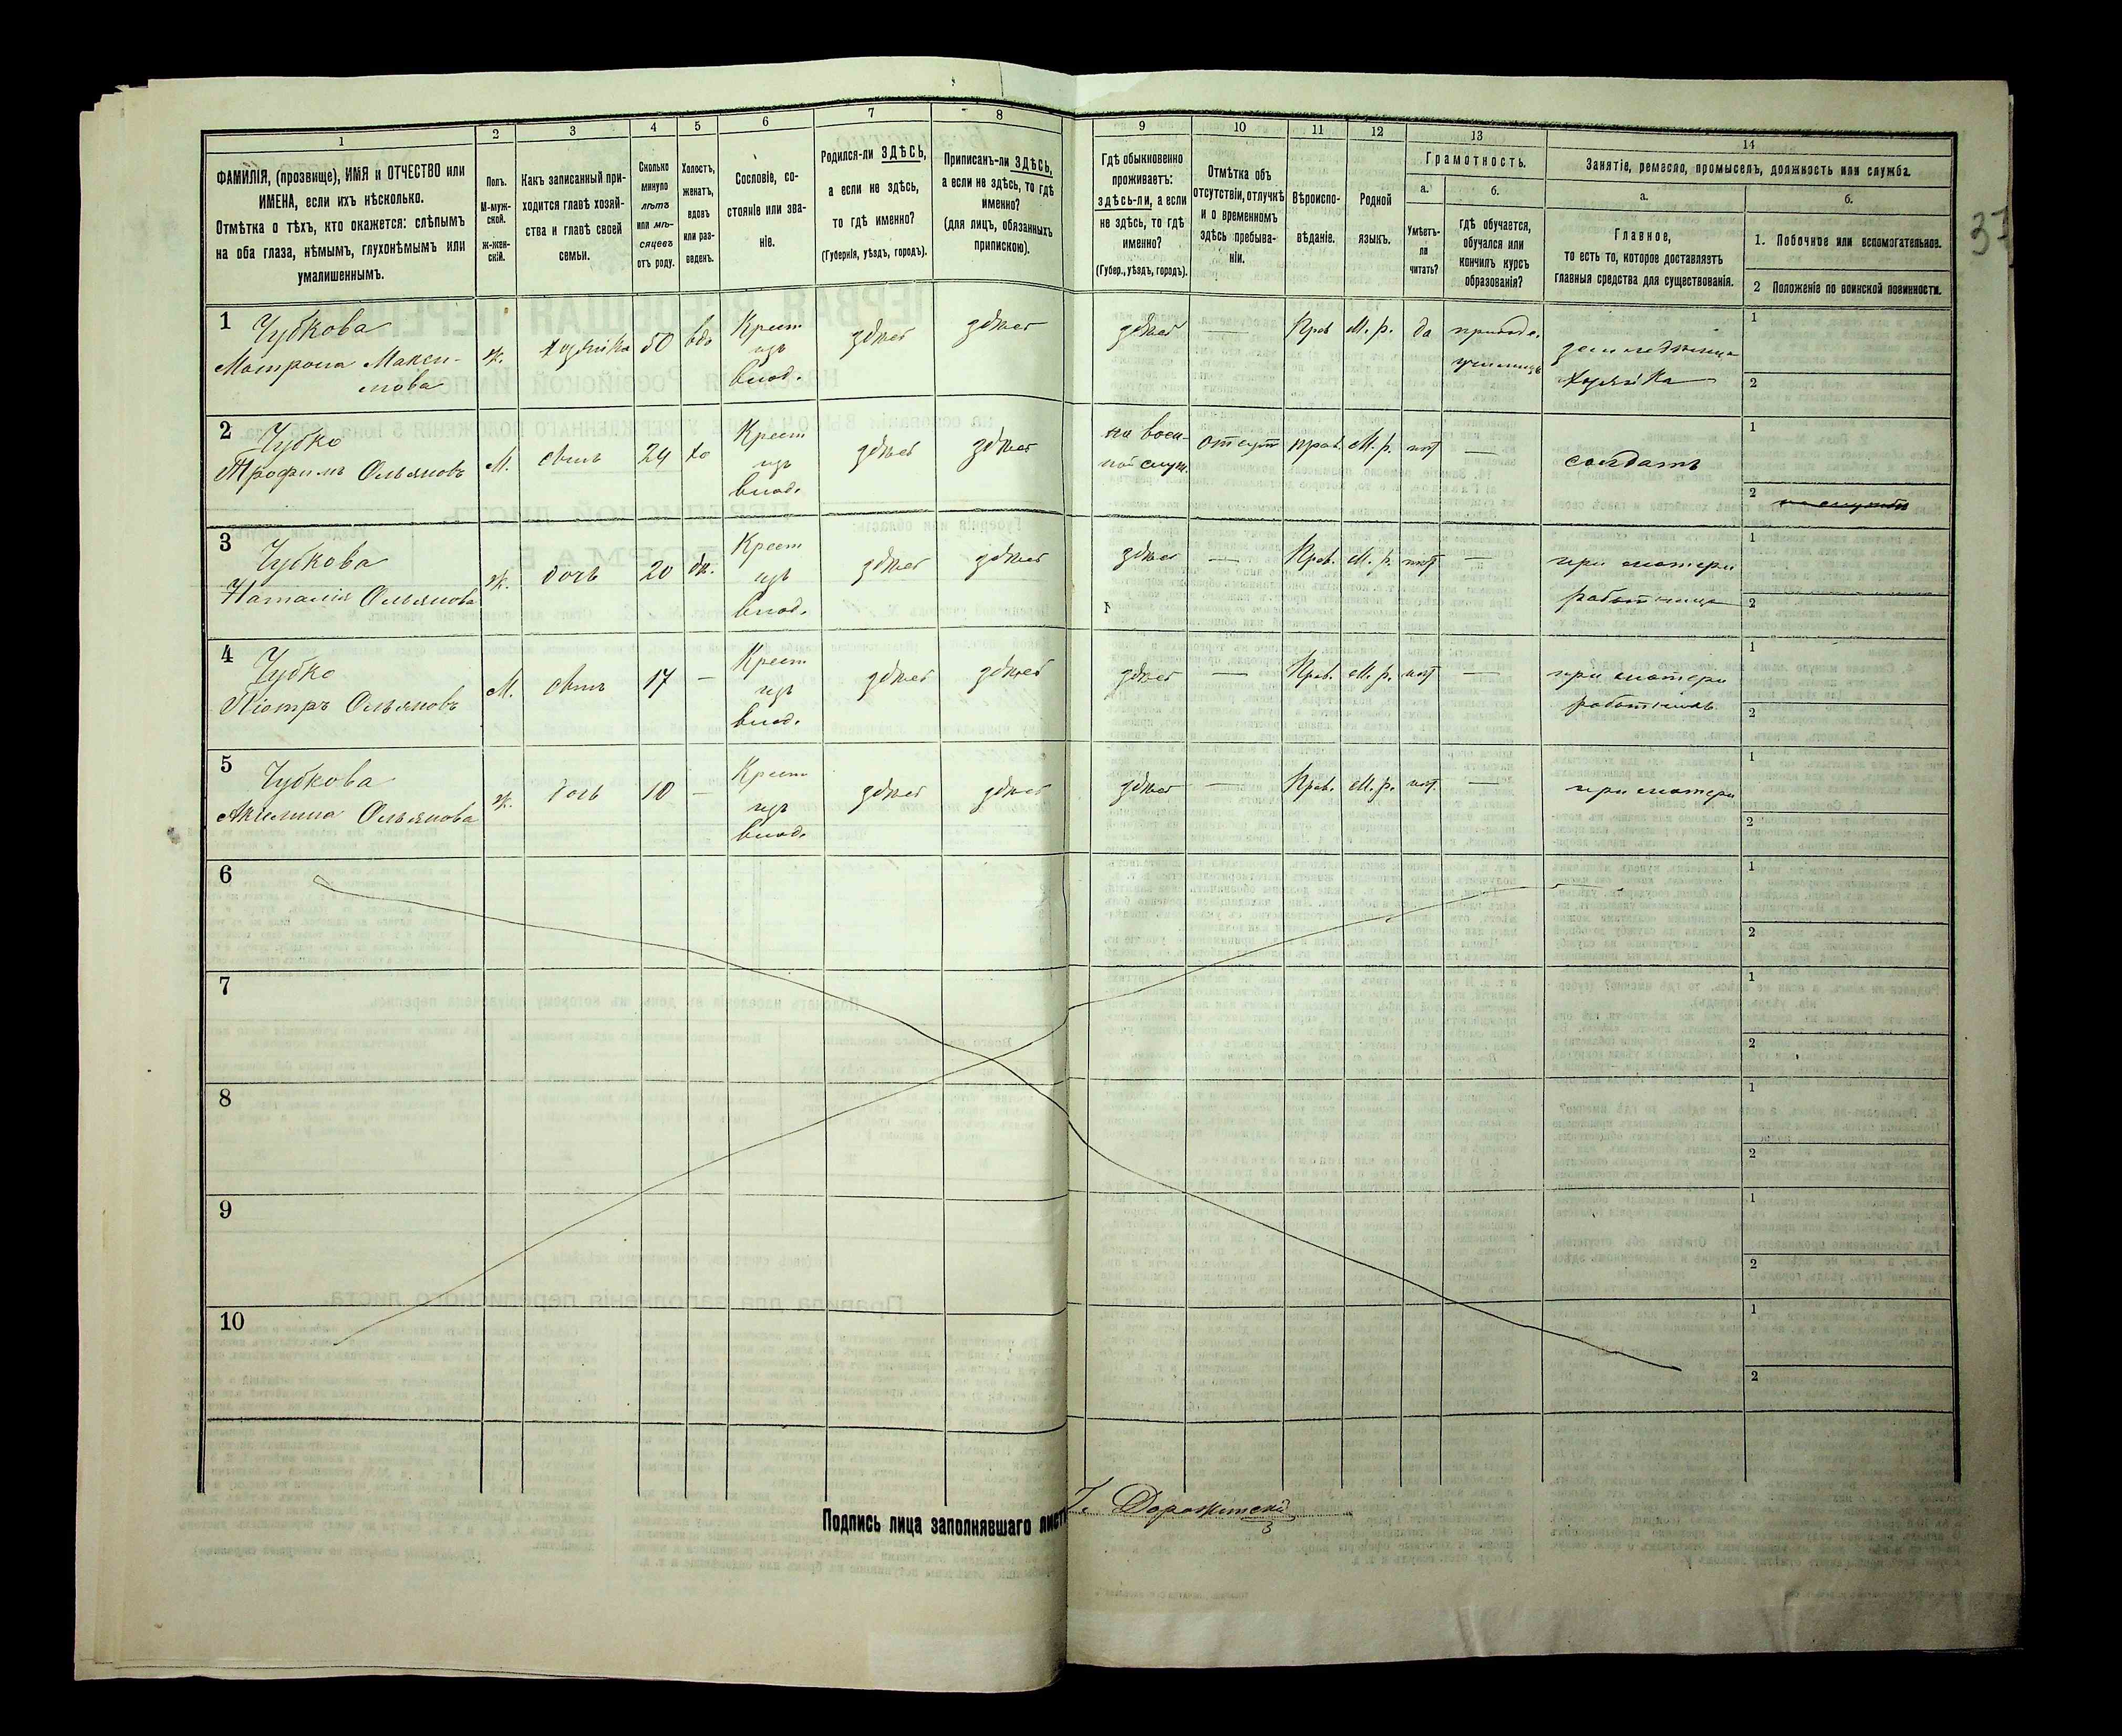 1
2
3
4
5
6
7
8
9
10
11
12
13
14
ФАМИЛІЯ, (прозвище), ИМЯ и ОТЧЕСТВО или
ИМЕНА, если ихъ нѣсколько.
Отмѣтка о тѣхъ, кто окажется: слѣпымъ
на оба глаза, нѣмымъ, глухонѣмымъ или
умалишеннымъ.
Полъ.
М-муж-
ской.
ж-жен-
скій.
Какъ записанный при-
ходится главѣ хозяй-
ства и главѣ своей
семьи.
Сколько
минуло
лѣтъ
или мѣ-
сяцевъ
отъ роду.
Холостъ,
женатъ,
вдовъ
или раз-
веденъ.
Сословіе, со-
стояніе или зва-
ніе.
Родился-ли ЗДѢСЬ,
а если не здѣсь,
то гдѣ именно?
(Губернія, уѣздъ, городъ).
Приписанъ-ли ЗДѢСЬ,
а если не здѣсь, то гдѣ
именно?
(для лицъ, обязанныхъ
припискою).
Гдѣ обыкновенно
проживаетъ:
здѣсь-ли, а если
не здѣсь, то гдѣ
именно?
(Губер., уѣздъ, городъ).
Отмѣтка объ
отсутствіи, отлучкѣ
и о временномъ
здѣсь пребыва-
ніи.
Вѣроиспо-
вѣданіе.
Родной
языкъ.
Грамотность.
а.
б.
Умѣетъ-
ли
читать?
Гдѣ обучается,
обучался или
кончилъ курсъ
образованія?
Занятіе, ремесло, промыселъ, должность или служба.
а.
б.
Главное,
то есть то, которое доставляетъ
главныя средства для существованія.
1. Побочное или вспомогательное.
2 Положеніе по воинской повинности.
37
1
Чубкова
Матрона Макси-
мова
ж.
хозяйка
50
вдо
Крест
изъ
влад.
здѣсь
здѣсь
здѣсь
—
Прав
М. р.
да
земледѣлица
хозяйка
1
2
2
Чубко
Трофимъ Ольяновъ
М.
сынъ
24
хо
Крест
изъ
влад.
здѣсь
здѣсь
на воен-
ной служ.
отсут
прав.
М. р.
нѣт
—
солдатъ
1
2
на службѣ
3
Чубкова
Наталія Ольянова
ж.
дочь
20
дѣ.
Крест
изъ
влад.
здѣсь
здѣсь
здѣсь
—
Прав.
М. р.
нѣт
—
при матери
работница
1
2
4
Чубко
Піотръ Ольяновъ
М.
сынъ
17
—
Крест
изъ
влад.
здѣсь
здѣсь
здѣсь
—
Прав.
М. р.
нѣт
—
при матери
работникъ
1
2
5
Чубкова
Акилина Ольянова
ж.
дочь
10
—
Крест
изъ
влад.
здѣсь
здѣсь
здѣсь
—
Прав.
М. р.
нѣт
—
при матери
1
2
6
1
2
7
1
2
8
1
2
9
1
2
10
1
2
Подпись лица заполнявшаго листъ